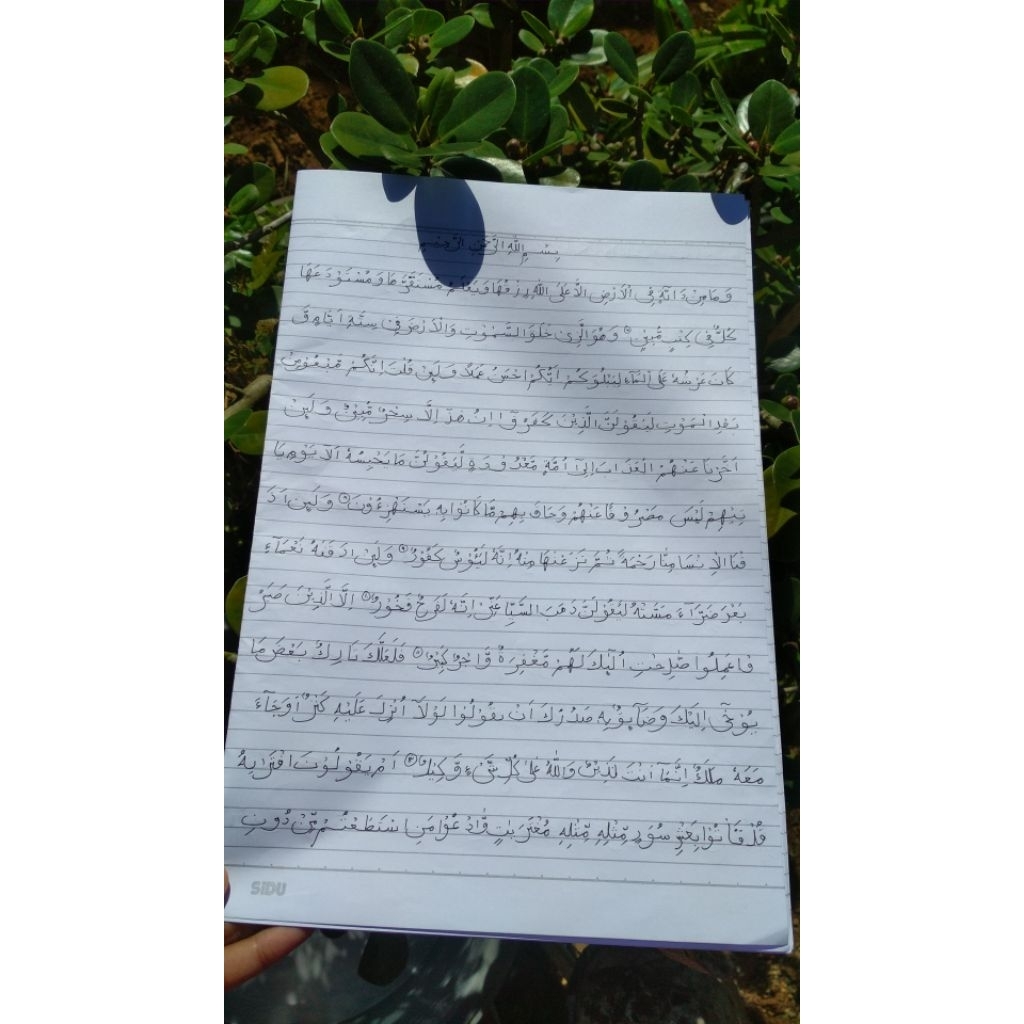 بِسْمِ اللّٰهِ الرَّحْمٰنِ الرَّحِيْمِ
وَمَامِنْ دَابَّةٍ فِى الْاَرْضِ اِلَّا عَلَى اللّٰهِ رِزْقُهَا وَيَعْلَمُ مُسْتَقَرَّهَا وَمُسْتَوْدَعَهَا
كُلٌّ فِيْ كِتٰبٍ مُّبِيْنٍ ۞ وَهُوَ الَّذِيْ خَلَقَ السَّمٰوٰتِ وَالْاَرْضَ فِيْ سِتَّةِ اَيَّامٍ وَّ
كَانَ عَرْشُهٗ عَلَى الْمَاءِ لِيَبْلُوَكُمْ اَيُّكُمْ اَحْسَنُ عَمَلًا وَلَىِٕنْ قُلْتَ اِنَّكُمْ مَّبْعُوْثُوْنَ
بَعْدِ الْمَوْتِ لَيَقُوْلَنَّ الَّذِيْنَ كَفَرُوْٓا اِنْ هٰذَا اِلَّا سِحْرٌ مُّبِيْنٌ وَلَىِٕنْ
اَخَّرْنَا عَنْهُمُ الْعَذَابَ اِلٰٓى اُمَّةٍ مَّعْدُوْدَةٍ لَّيَقُوْلُنَّ مَا يَحْبِسُهٗ اَلَا يَوْمَ يَا
تِيْهِمْ لَيْسَ مَصْرُوْفًا عَنْهُمْ وَحَاقَ بِهِمْ مَّا كَانُوْا بِهٖ يَسْتَهْزِءُوْنَ ۞ وَلَىِٕنْ اَذَ
قْنَا الْاِنْسَانَ مِنَّا رَحْمَةً ثُمَّ نَزَعْنٰهَا مِنْهُ اِنَّهٗ لَيَـُٔوْسٌ كَفُوْرٌ ۞ وَلَىِٕنْ اَذَقْنٰهُ نَعْمَاۤءَ
بَعْدَ ضَرَّاۤءَ مَسَّتْهُ لَيَقُوْلَنَّ ذَهَبَ السَّيِّاٰتُ عَنِّيْ اِنَّهٗ لَفَرِحٌ فَخُوْرٌ ۞ اِلَّا الَّذِيْنَ صَبَرُ
وْا عَمِلُوا الصّٰلِحٰتِ اُولٰۤىِٕكَ لَهُمْ مَّغْفِرَةٌ وَّاَجْرٌ كَبِيْرٌ ۞ فَلَعَلَّكَ تَارِكٌ بَعْضَ مَا
يُوْحٰٓى اِلَيْكَ وَضَاۤىِٕقٌ بِهٖ صَدْرُكَ اَنْ يَقُوْلُوْا لَوْلَآ اُنْزِلَ عَلَيْهِ كَنْزٌ اَوْ جَاۤءَ
مَعَهٗ مَلَكٌ اِنَّمَآ اَنْتَ نَذِيْرٌ وَاللّٰهُ عَلٰى كُلِّ شَيْءٍ وَّكِيْلٌ ۞ اَمْ يَقُوْلُوْنَ افْتَرٰىهُ
قُلْ فَأْتُوْا بِعَشْرِ سُوَرٍ مِّثْلِهٖ مِّثْلِهٖ مُفْتَرَيٰتٍ وَّادْعُوْا مَنِ اسْتَطَعْتُمْ مِّنْ دُوْنِ
SIDU